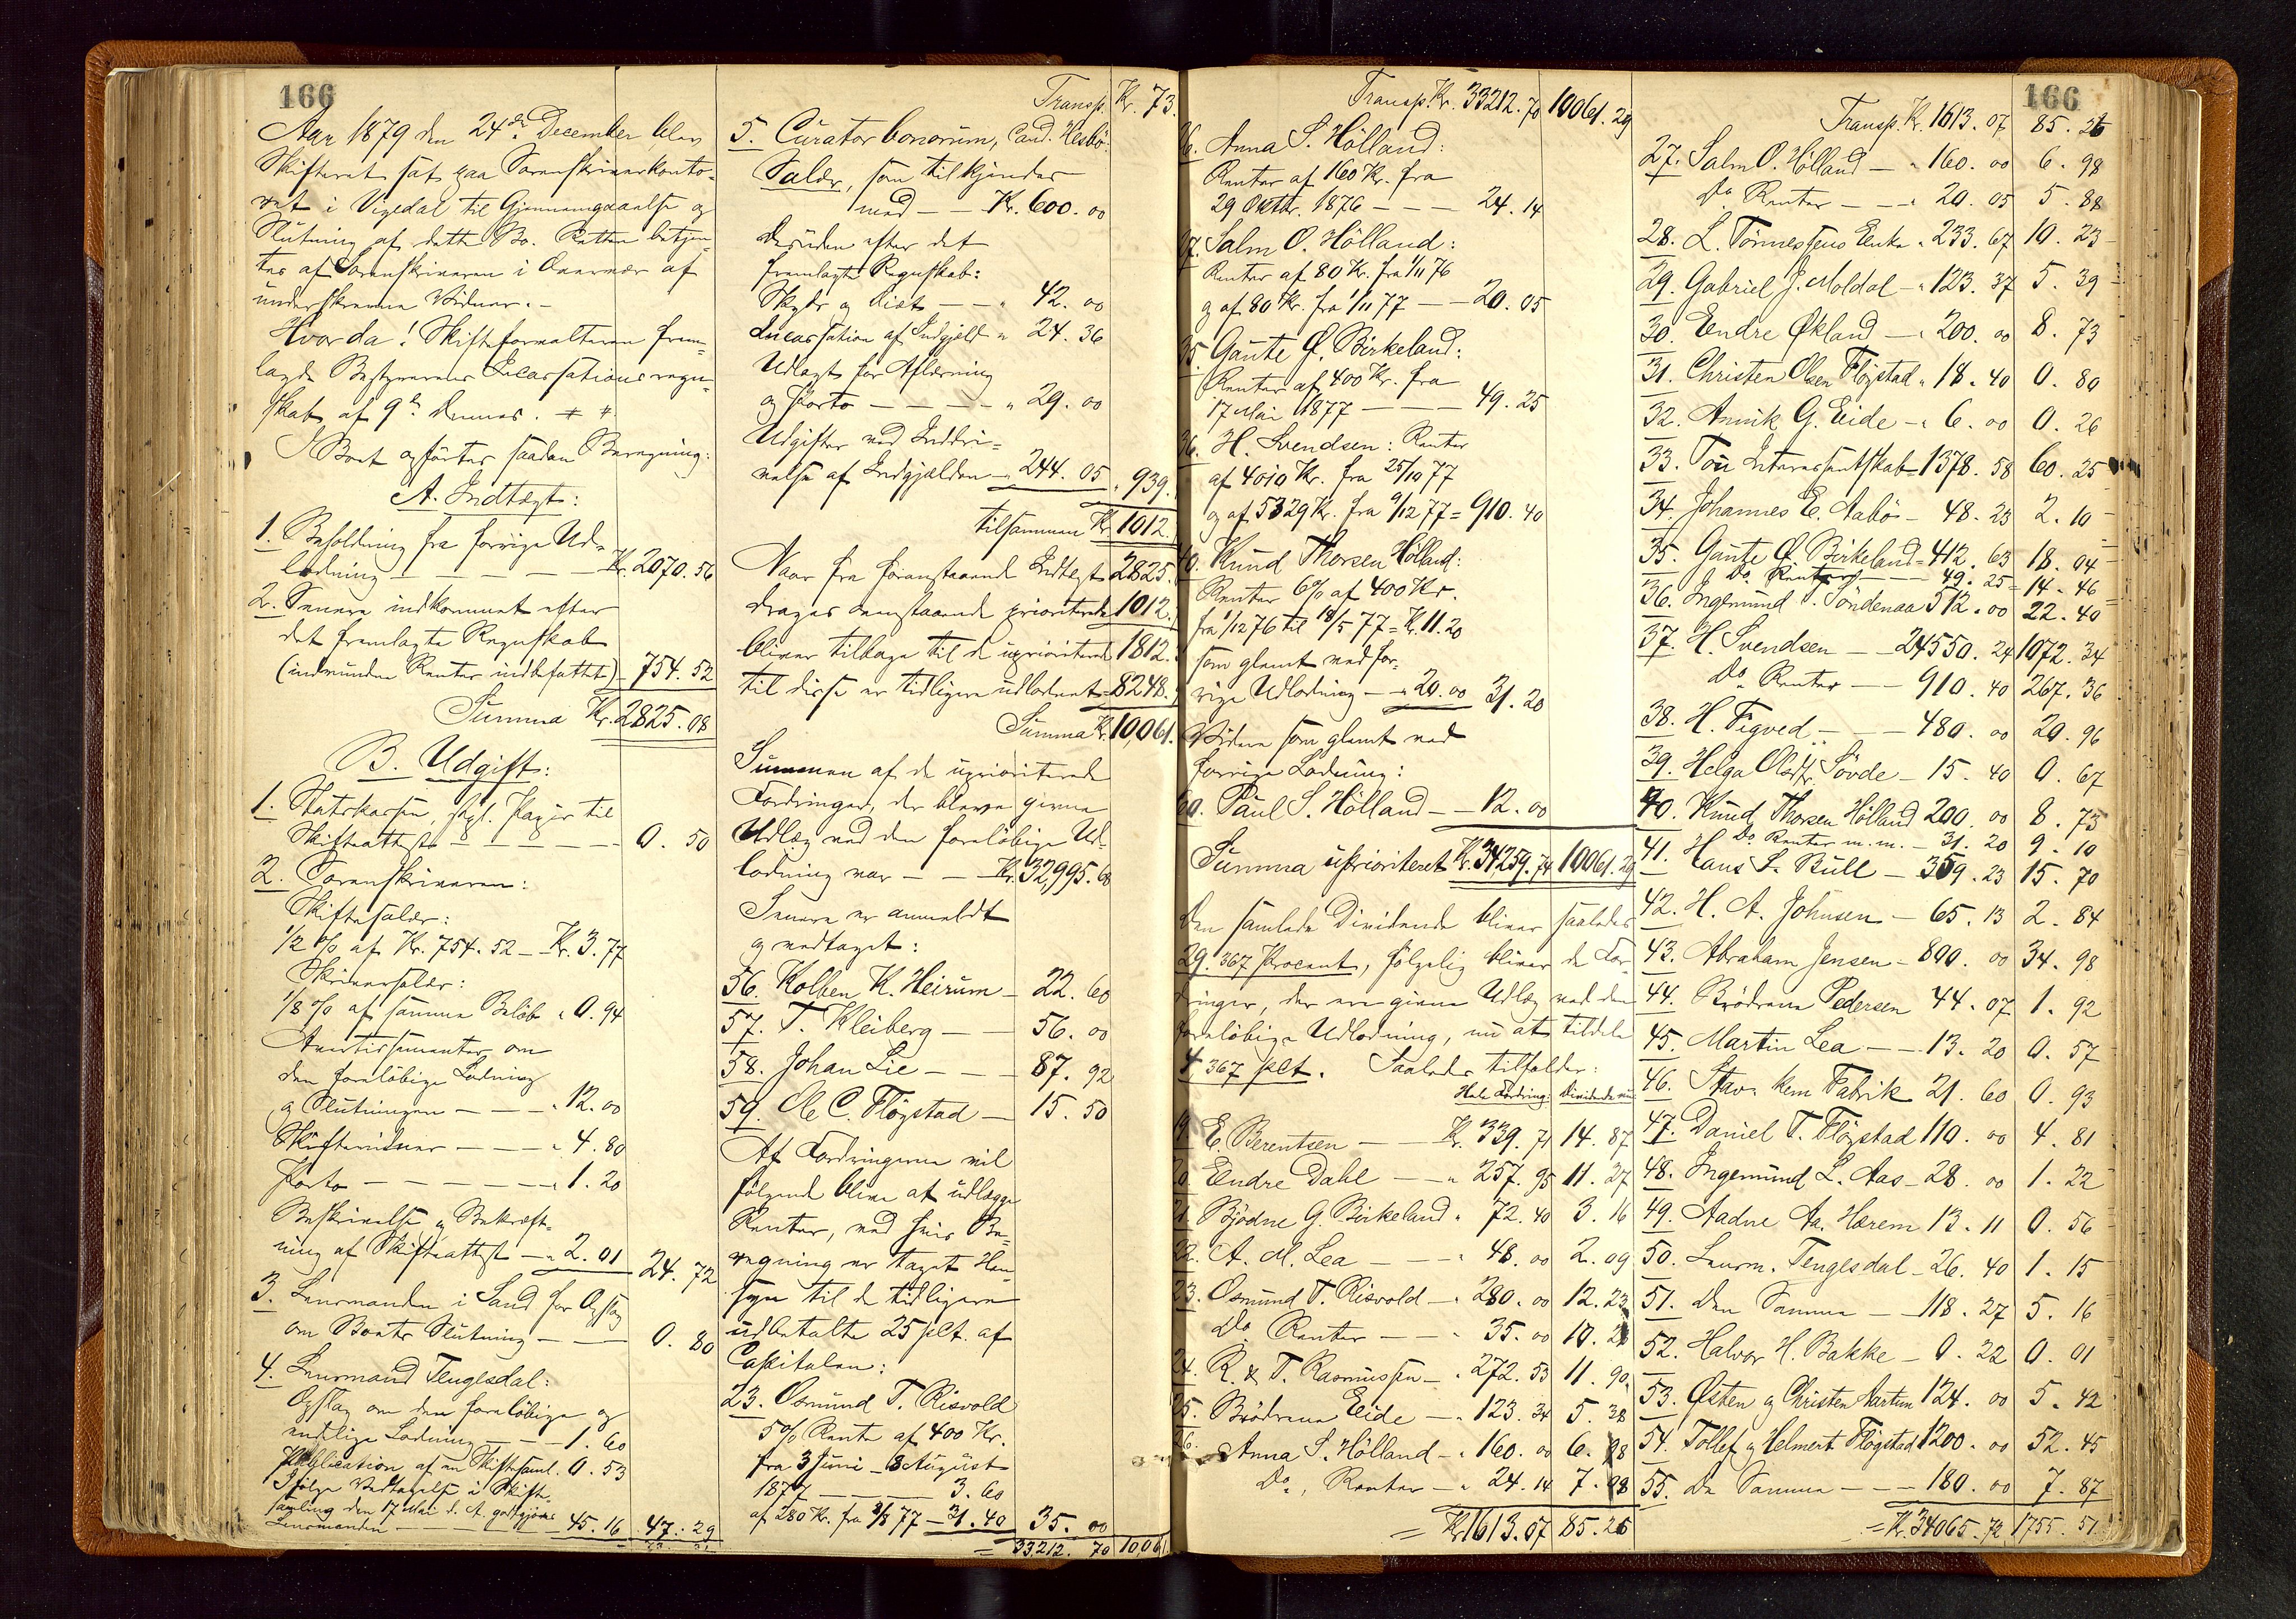 166
Aar 1879 den 24de December blev
Skifteret sat paa Sorenskriverkonto-
ret i Vigedal til Gjennemgaaelse og
Slutning af dette Bo. Retten betjen-
tes af Sorenskriveren i Overvær af
underskrevne Vidner. -
Hvorda! Skifteforvalteren frem-
lagde Bestyrerens Incassationsregn-
skab af 9de dennes.
I Boet opførtes saadan Beregning:
A. Indtægt:
1. Beholdning fra forrige Ud-
lodning - - - Kr. 2070.56
2. Senere indkommet efter
det fremlagte Regnskab
(indvundne Renter indbefattet) - 754.52
Summa Kr. 2825.08
B. Udgift:
1. Statskassen, stpl. Papir til
Skifteattest - - - 0.50
2. Sorenskriveren:
Skiftesalær:
1/2 % af Kr. 754.52 - Kr. 3.77
Skriversalær:
1/8 % af samme Beløb " 0.94
Avertissementer om
den foreløbige Lodning
og Slutningen - - - " 12.00
Skiftevidner - - - " 4.80
Porto - - - " 1.20
Beskrivelse og Bekræft-
ning af Skifteattest - " 2.01 24.72
3. Lensmanden i Sand for Opslag
om Boets Slutning - - 0.80
4. Lensmand Tengesdal:
Opslag om den foreløbige og
endelige Lodning - - - 1.60
Publication af en Skiftesaml. 0.53
Ifølge Vedtagelse i Skifte-
samling den 17 Mai d. A. godtgjøres
Lensmanden - - - 45.16 47.29
Transp. Kr. 73.
5. Curator bonorum, Cand. Hesbø:
Salær, som tilkjendes
med - - Kr. 600.00
desuden efter det
fremlagte Regnskab:
Skyds og Diæt - - " 42.00
Incassation af Indgjæld " 24.36
Udlagt for Aflevering
og Porto - - - " 29.00
Udgifter ved Inddri-
velse af Indgjælden - 244.05 " 939.
tilsammen Kr. 1012.
Naar fra foranstaaende Indtægt 2825.
drages ovenstaaende prioriterede 1012.
bliver tilbage til de uprioriterede 1812.
til disse er tidligere udloddet 8248.
Summa Kr. 10,061.
Summen af de uprioriterede
Fordringer, der bleve givne
Udlæg ved den foreløbige Ud-
lodning var - - Kr. 32,995.68
Senere er anmeldt
og vedtaget:
56. Kolben K. Heirum - 22.60
57. T. Kleiberg - - 56.00
58. Johan Lie - - - 87.92
59. Ole C. Fløgstad - 15.50
Af Fordringerne vil
følgende blive at udlægge
Renter, ved hvis Be-
regning er taget Hen-
syn til de tidligere
udbetalte 25 pCt. af
Capitalen:
23. Osmund T. Risvold
5 % Rente af 400 Kr.
fra 3 Juni - 8 August
1877 - - - 3.60
af 280 Kr. fra 8/8 77 - 31.40 35.00
= 33,212.70 10,061
Transp. Kr. 33212.70 10061.29
26. Anna S. Hølland:
Renter af 160 Kr. fra
29 Oktbr. 1876 - - - 24.14
27. Salm O. Hølland:
Renter af 80 Kr. fra 1/11 76
og af 80 Kr. fra 1/11 77 - - 20.05
35. Gaute Ø. Birkeland:
Renter af 400 Kr. fra
17 Mai 1877 - - - 49.25
36. H. Svendsen: Renter
af 4010 Kr. fra 25/10 77
og af 5329 Kr. fra 9/12 77 = 910.40
40. Knud Thorsen Hølland:
Renter 6 % af 400 Kr.
fra 1/12 76 til 18/5 77 = Kr. 11.20
som glemt ved for-
rige Udlodning - " 20.00 31.20
Videre som glemt ved
forrige Lodning:
60. Paul S. Hølland - - 12.00
Summa uprioriteret Kr. 34259.74 10061.29
Den samlede Dividende bliver saaledes
29.367 Procent, følgelig bliver de For-
dringer, der ere givne Udlæg ved den
foreløbige Udlodning, nu at tildele
4.367 pCt. Saaledes tilfalder:
Hele Fordring: Dividende nu:
19. E. Berentsen - - Kr. 339.71 14.87
20. Endre Dahl - - " 257.95 11.27
21. Bjødne G. Birkeland " 72.40 3.16
22. A. M. Lea - - " 48.00 2.09
23. Osmund T. Risvold - " 280.00 12.23
Do Renter - - " 35.00 10.28
24. R. & T. Rasmussen - " 272.53 11.90
25. Brødrene Eide - " 123.34 5.38
26. Anna S. Hølland - " 160.00 6.98
Do, Renter - " 24.14 7.08
= Kr. 1613.07 85.26
166
Transp. Kr. 1613.07 85.26
27. Salm O. Hølland - " 160.00 6.98
Do Renter - - " 20.05 5.88
28. L. Tønnessens Enke " 233.67 10.23
29. Gabriel J. Moldal - " 123.37 5.39
30. Endre Økland - " 200.00 8.73
31. Christen Olsen Fløgstad " 18.40 0.80
32. Annik G. Eide - " 6.00 0.26
33. Tou Interessentskab - 1378.58 60.25
34. Johannes E. Aabø - 48.23 2.10
35. Gaute Ø. Birkeland - 412.63 18.04
Do Renter - - 49.25 14.46
36. Ingemund T. Søndenaa 512.00 22.40
37. H. Svendsen - - 24550.24 1072.34
Do Renter - - 910.40 267.36
38. H. Figved - - 480.00 20.96
39. Helga Olsdtr Søvde - 15.40 0.67
40. Knud Thorsen Hølland 200.00 8.73
Do Renter m.m. - 31.20 9.10
41. Hans L. Bull - 359.23 15.70
42. H. A. Johnsen - 65.13 2.84
43. Abraham Jensen - 800.00 34.98
44. Brødrene Pedersen 44.07 1.92
45. Martin Lea - - 13.20 0.57
46. Stav. kem Fabrik 21.60 0.93
47. Daniel T. Fløgstad 110.00 4.81
48. Ingemund L. Aas - 28.00 1.22
49. Aadne Aa. Hærem 13.11 0.56
50. Lensm. Tengesdal - 26.40 1.15
51. Den Samme - - 118.27 5.16
52. Halvor H. Bakke - 0.22 0.01
53. Østen og Christen Aartun 124.00 5.42
54. Tollef og Helmert Fløgstad 1200.00 52.45
55. De Samme - - - 180.00 7.87
= Kr. 34065.72 1755.51